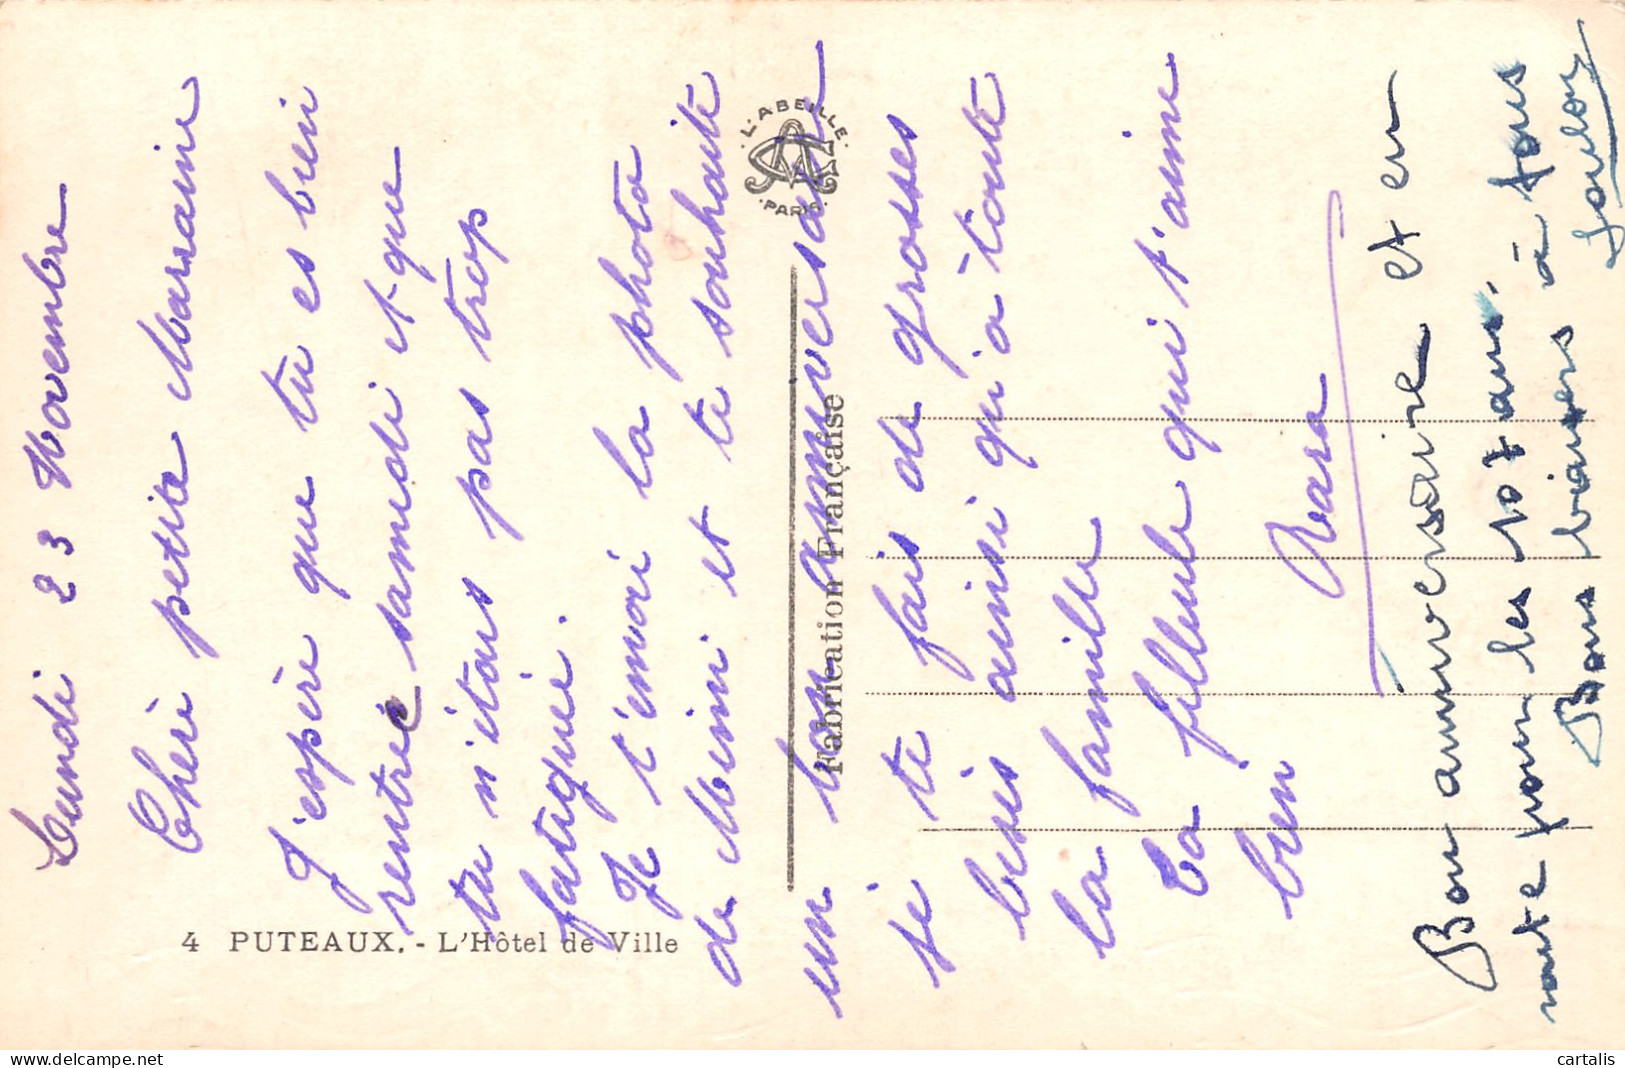 Lundi 23 Novembre
Chère petite Marraine
J'espère que tu es bien
rentrée samedi et que
tu n'étais pas trop
fatiguée.
Je t'envoi la photo
de Mimi et te souhaite
un bon anniversaire
je te fais de grosses
bises ainsi qu'à toute
la famille
Ta filleule qui t'aime
bien
Bon anniversaire et en
route pour les 107 ans.
Bons baisers à tous
4 PUTEAUX. - L'Hôtel de Ville
Fabrication Française
L'ABEILLE
PARIS
delcampe.net
cartalis